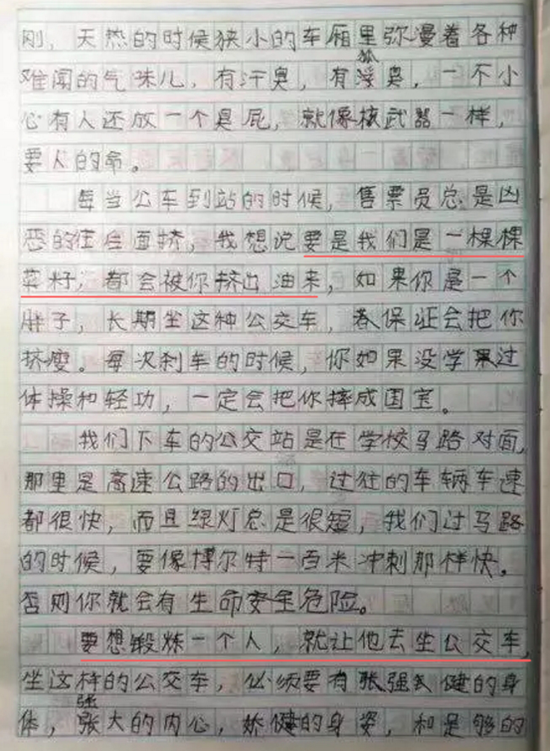 刚，天热的时候狭小的车厢里弥漫着各种
狐
难闻的气味儿，有汗臭，有臭，一不小
心有人还放一个臭屁，就像核武器一样，
要人的命。
每当公车到站的时候，售票员总是凶
恶的往后面挤，我想说要是我们是一棵棵
菜籽，都会被你挤出油来，如果你是一个
胖子，长期坐这种公交车，春保证会把你
挤瘦。每次刹车的时候，你如果没学过
体操和轻功，一定会把你摔成国宝。
我们下车的公交站是在学校马路对面，
那里是高速公路的出口，过往的车辆车速
都很快，而且绿灯总是很短，我们过马路
的时候，要像博尔特一百米冲刺那样快。
否则你就会有生命安全危险。
要想锻炼一个人，就让他去坐公交车，
坐这样的公交车，必须要有强健的身
强
体，大的内心，矫健的身姿，和足够的